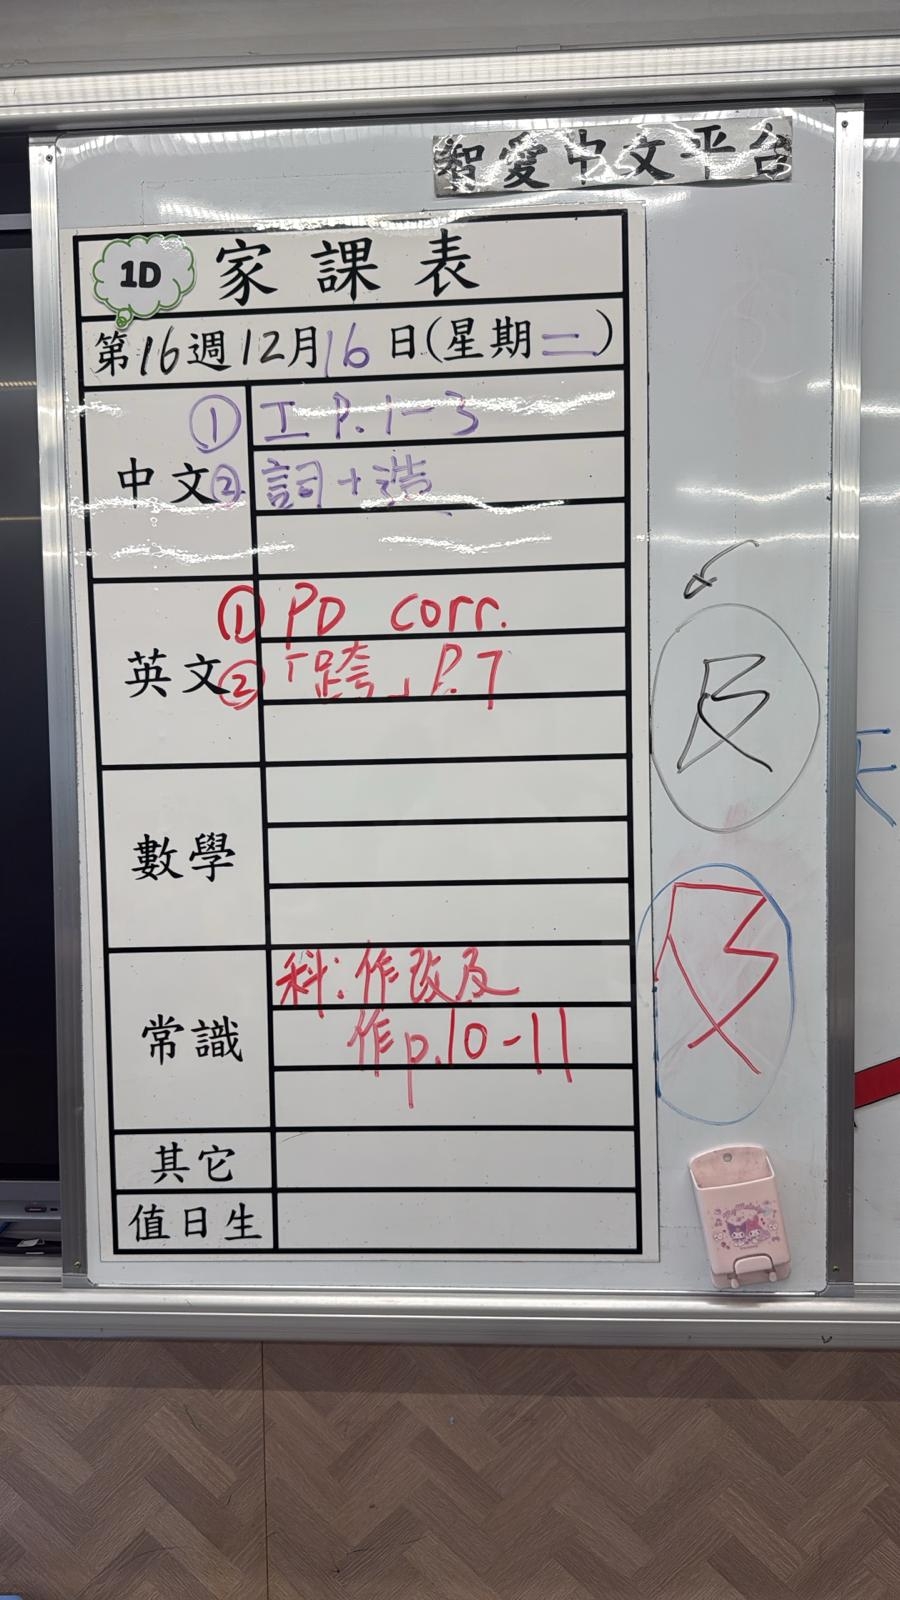 智愛中文平台
1D 家課表
第16週12月16日(星期二)
中文
① 工 P.1-3
② 詞+造
英文
① PD corr.
② 「跨」P.7
數學
常識
科:作改及
作p.10-11
其它
值日生